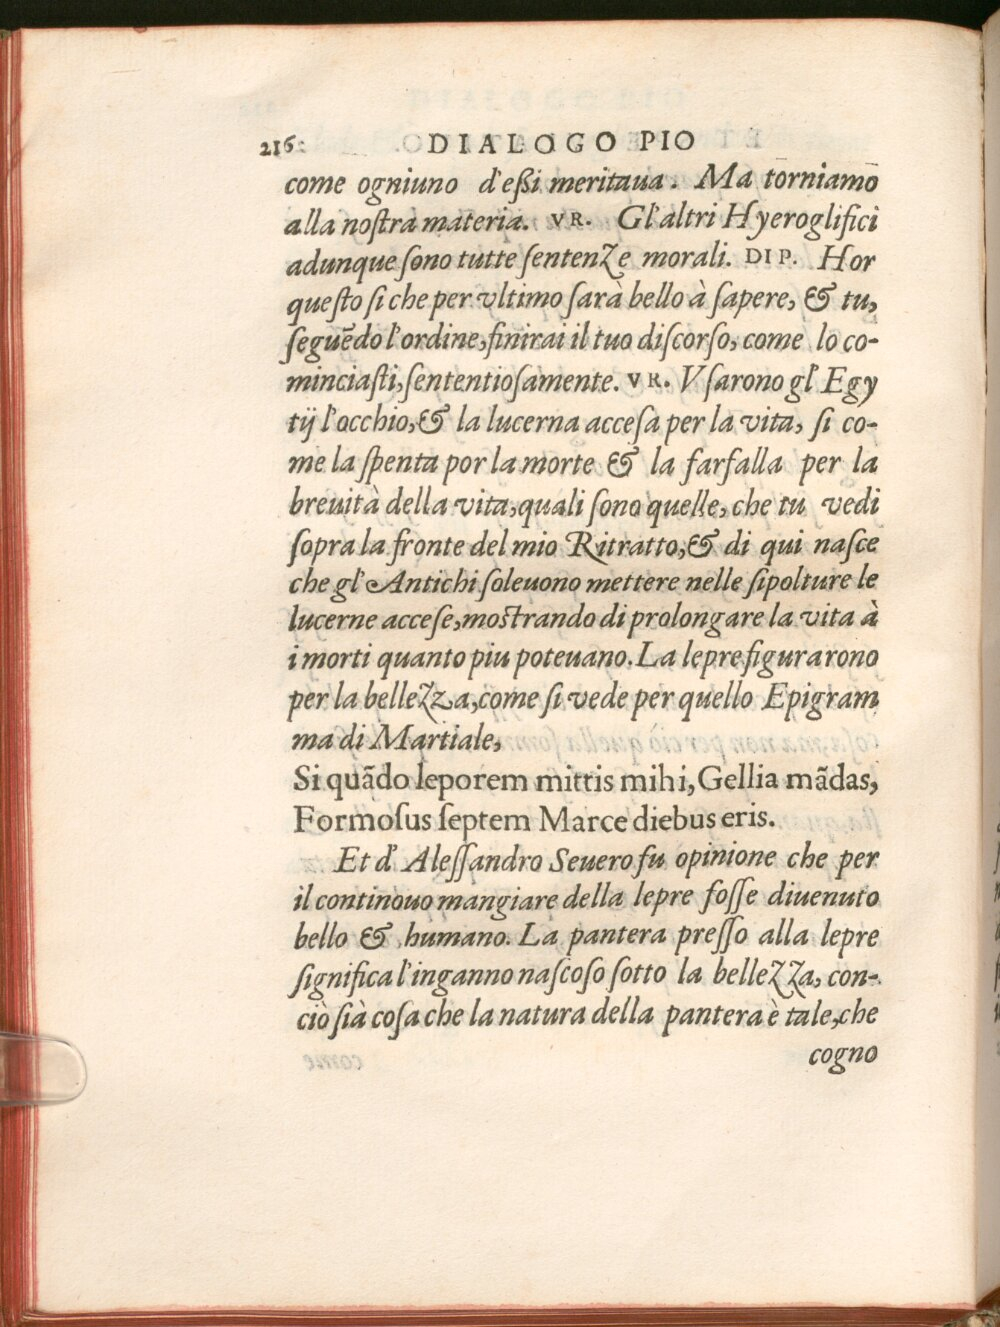 216 DIALOGO PIO
come ogniuno d'eßi meritaua. Ma torniamo
alla nostra materia. VR. Gl'altri Hyeroglifici
adunque sono tutte sentenze morali. DIP. Hor
questo si che per vltimo sarà bello à sapere, & tu,
seguẽdo l'ordine, finirai il tuo discorso, come lo co-
minciasti, sententiosamente. VR. Vsarono gl'Egy
tij l'occhio, & la lucerna accesa per la vita, si co-
me la spenta por la morte & la farfalla per la
breuità della vita, quali sono quelle, che tu vedi
sopra la fronte del mio Ritratto, & di qui nasce
che gl'Antichi soleuono mettere nelle sipolture le
lucerne accese, mostrando di prolongare la vita à
i morti quanto piu poteuano. La lepre figurarono
per la bellezza, come si vede per quello Epigram
ma di Martiale,
Si quãdo leporem mittis mihi, Gellia mãdas,
Formosus septem Marce diebus eris.
Et d'Alessandro Seuero fu opinione che per
il continouo mangiare della lepre fosse diuenuto
bello & humano. La pantera presso alla lepre
significa l'inganno nascoso sotto la bellezza, con-
ciò sià cosa che la natura della pantera è tale, che
cogno